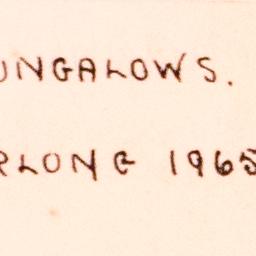 UNGALOWS.
RLONG 1965